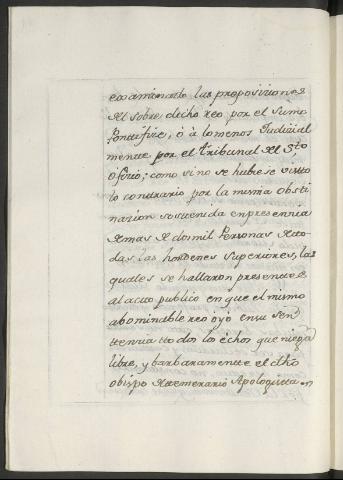 examinado las proposiziones
del sobre decho reo por el sumo
Pontifize, ó à lo menos Judizial
mentte por el tribunal del Sto
ofizio; como si no se hubiese visto
lo contrario por la misma obsti
nazion sostenida en presenzia
demas de dos mil Personas de to
das las hordenes superiores, las
quales se hallaron presenttes
al acto publico en que el mismo
abominable reo oyó en su sen
ttenzia ttodos los echos que niega
libre, y barbaramentte el dho
obispo del ttemerario Apologista en